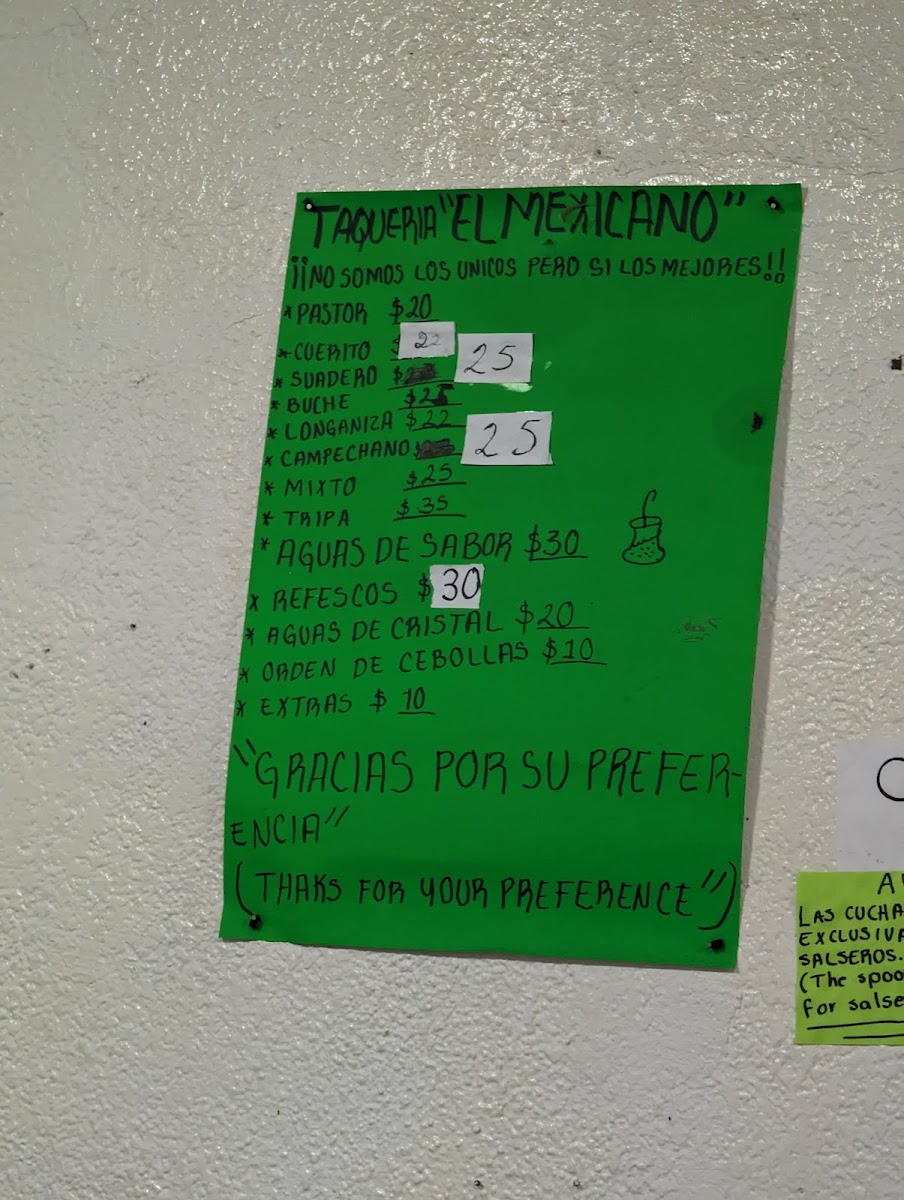 TAQUERIA "EL MEXICANO"
¡¡NO SOMOS LOS UNICOS PERO SI LOS MEJORES!!
* PASTOR $20
* CUERITO $ 22
* SUADERO $ 25
* BUCHE $25
* LONGANIZA $22
* CAMPECHANO $ 25
* MIXTO $25
* TRIPA $35
* AGUAS DE SABOR $30
* REFESCOS $30
* AGUAS DE CRISTAL $20
* ORDEN DE CEBOLLAS $10
* EXTRAS $ 10
"GRACIAS POR SU PREFER-
ENCIA"
(THAKS FOR YOUR PREFERENCE")
LAS CUCHA
EXCLUSIVA
SALSEROS.
(The spoo
for salse